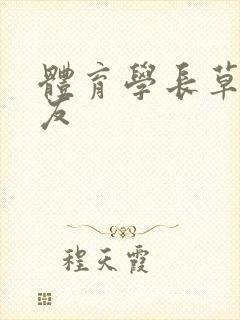 體育學長草
友
程天霞